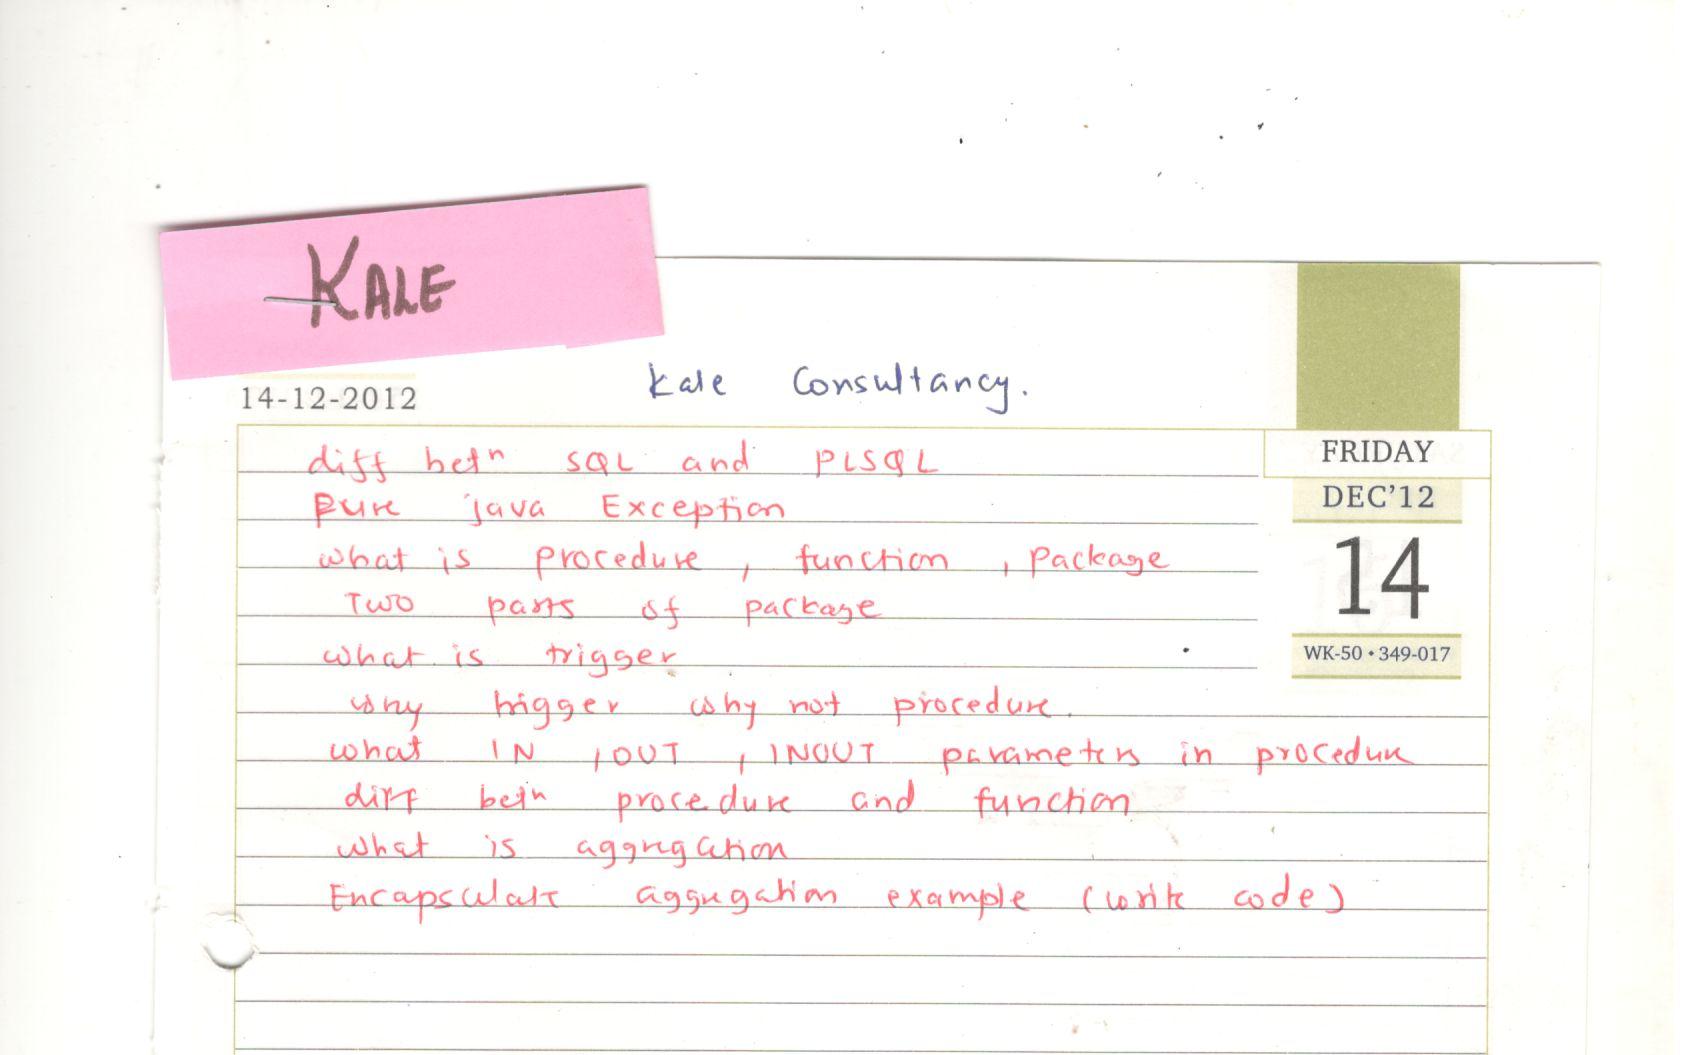 KALE
Kale Consultancy.
14-12-2012
FRIDAY
DEC'12
14
WK-50 • 349-017
diff betn SQL and PLSQL
Pure java Exception
what is procedure, function, package
Two parts of package
what is trigger
why trigger why not procedure.
what IN, OUT, INOUT parameters in procedure
diff betn procedure and function
what is aggregation
Encapsulate aggregation example (write code)